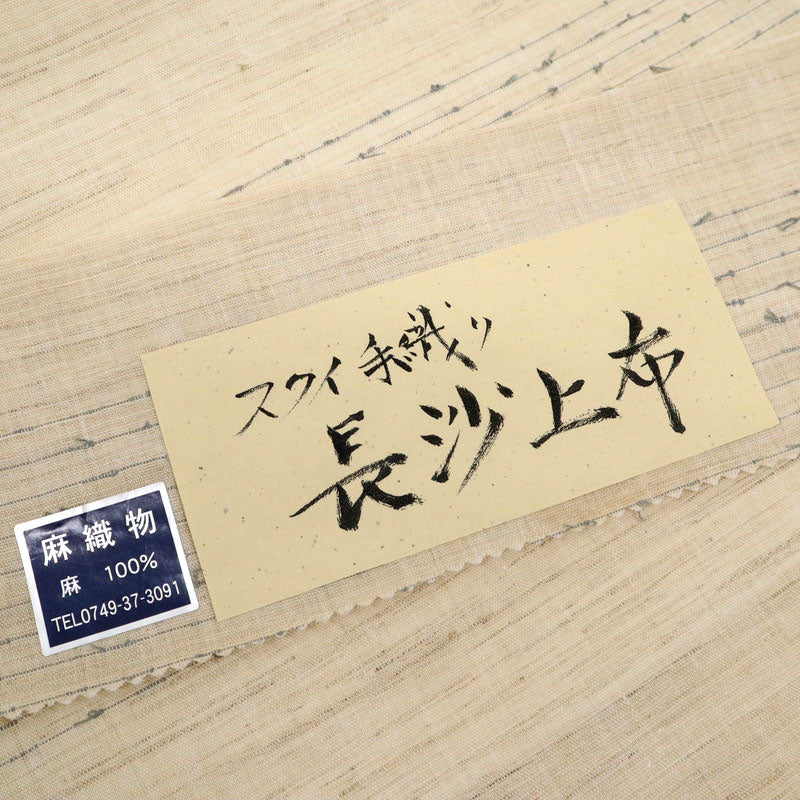 スクイ手織り
長沙上布
麻織物
麻 100%
TEL0749-37-3091